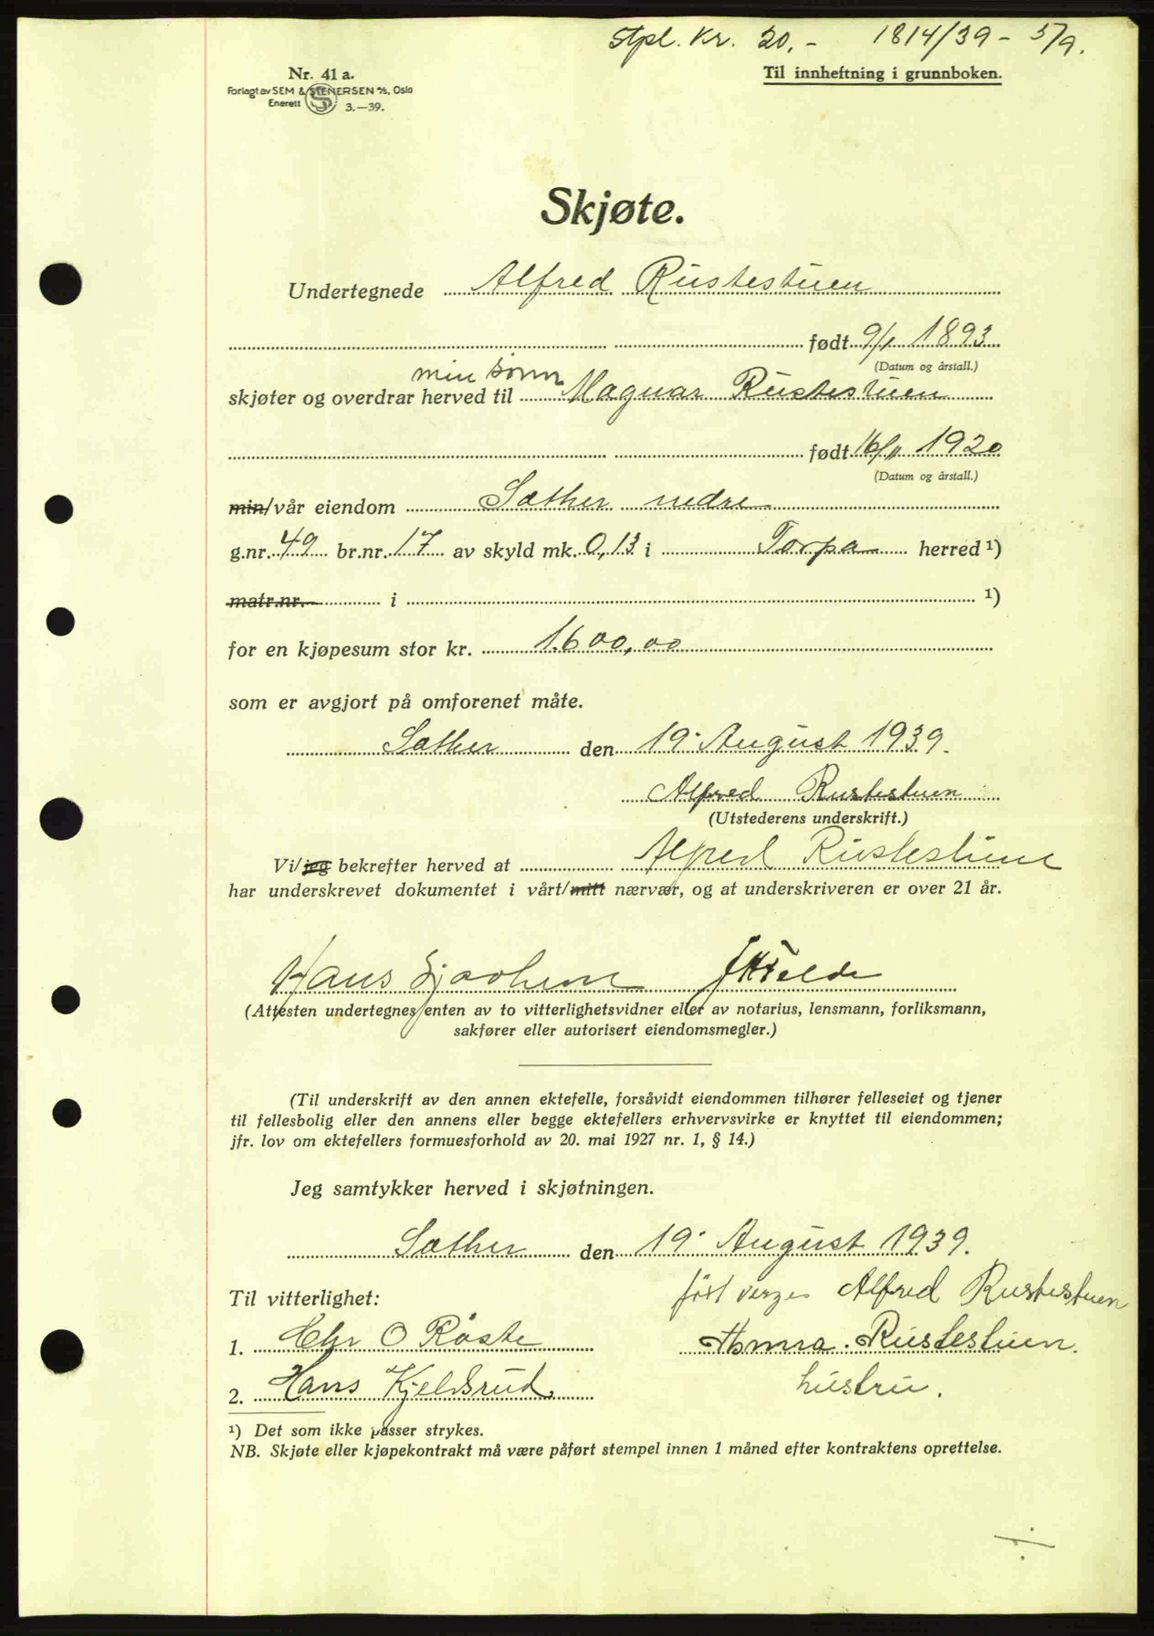 Stpl. Kr. 20,- 1814/39 - 5/9.
Nr. 41 a.
Forlagt av SEM & STENERSEN A/S, Oslo
Enerett S 3.—39.
Til innheftning i grunnboken.
Skjøte.
Undertegnede Alfred Rustestuen
født 9/1 1893
(Datum og årstall.)
min sønn
skjøter og overdrar herved til Magnar Rustestuen
født 16/11 1920
(Datum og årstall.)
min/vår eiendom Sæther nedre
g.nr. 49 br.nr. 17 av skyld mk. 0,13 i Torpa herred ¹)
matr.nr. i ¹)
for en kjøpesum stor kr. 1.600,00
som er avgjort på omforenet måte.
Sæther den 19. August 1939.
Alfred Rustestuen
(Utstederens underskrift.)
Vi/jeg bekrefter herved at Alfred Rustestuen
har underskrevet dokumentet i vårt/mitt nærvær, og at underskriveren er over 21 år.
Hans
(Attesten undertegnes enten av to vitterlighetsvidner eller av notarius, lensmann, forliksmann,
sakfører eller autorisert eiendomsmegler.)
(Til underskrift av den annen ektefelle, forsåvidt eiendommen tilhører felleseiet og tjener
til fellesbolig eller den annens eller begge ektefellers erhvervsvirke er knyttet til eiendommen;
jfr. lov om ektefellers formuesforhold av 20. mai 1927 nr. 1, § 14.)
Jeg samtykker herved i skjøtningen.
Sæther den 19. August 1939.
Til vitterlighet: Alfred Rustestuen
1. Chr O Røste Rustestuen.
2. Hans Kjeldsrud. hustru.
¹) Det som ikke passer strykes.
NB. Skjøte eller kjøpekontrakt må være påført stempel innen 1 måned efter kontraktens oprettelse.